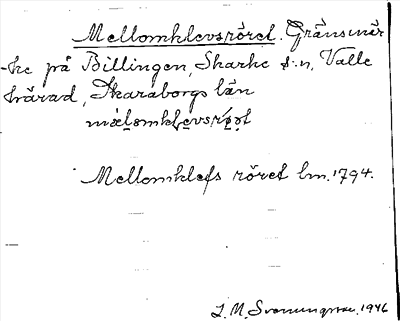 Mellomklevsröret. Gränsmär
-ke på Billingen, Skarke s:n, Valle
härad, Skaraborgs län
Mellomklefs röret lm. 1794.
1946